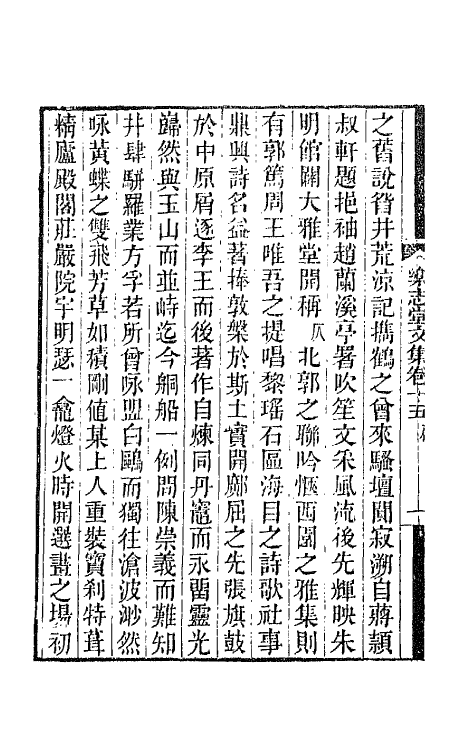 之舊說眢井荒涼記攜鶴之曾來騷壇闃寂溯自蔣頴
叔軒題挹袖趙蘭溪亭署吹笙文采風流後先輝映朱
明館闢大雅堂開稱北郭之聯吟愜西園之雅集則
有郭篤周王唯吾之提唱黎瑶石區海目之詩歌社事
鼎興詩名益著捧敦槃於斯土實開鄺屈之先張旗鼓
於中原屑逐李王而後著作自煉同丹竈而永畱靈光
巋然與玉山而並峙迄今舸船一例問陳崇義而難知
井肆駢羅業方孚若所曾咏盟白鷗而獨往滄波渺然
咏黃蝶之雙飛芳草如積剛値某上人重裝寶刹特葺
精廬殿閣莊嚴院宇明瑟一龕燈火時開選畫之場初
樂志堂文集卷十五